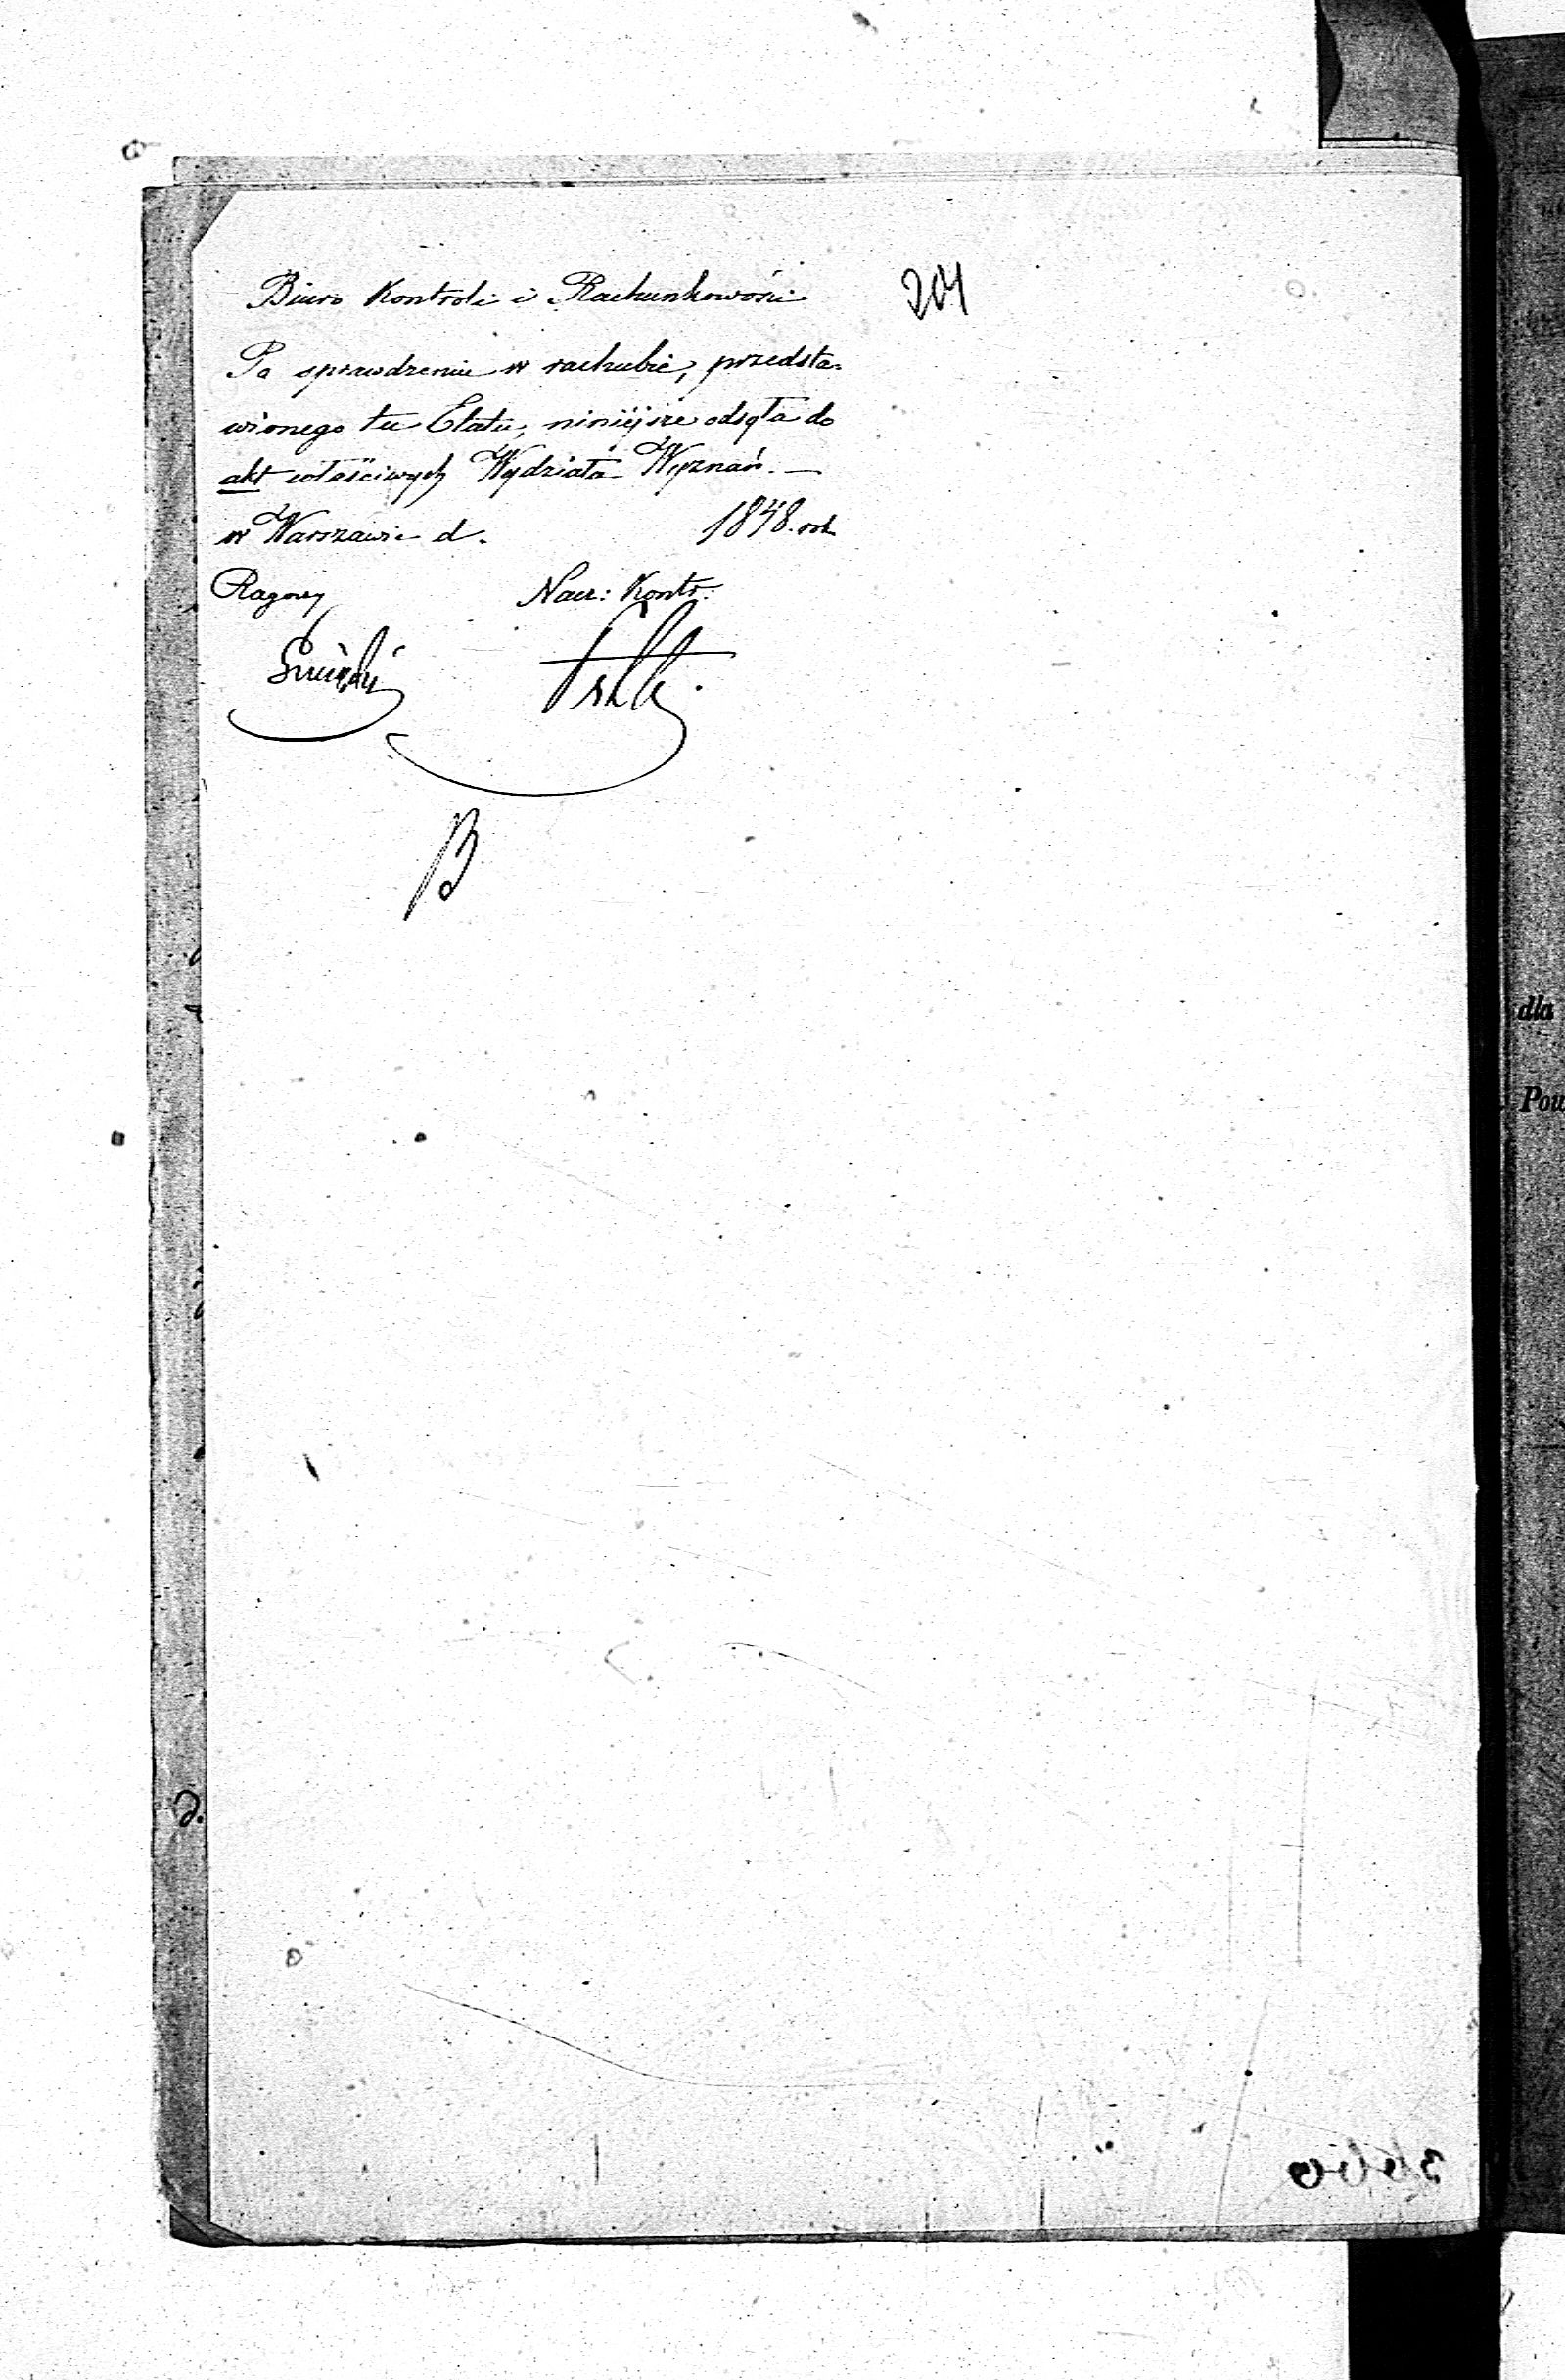 204
Biuro Kontroli i Rachunkowości
Po sprawdzeniu w rachubie, przedsta-
wionego tu Etatu, niniéjsze odsyła do
akt właściwych Wydziału Wyznań. —
w Warszawie d. 1848. rok
Nacz: Kontr:
B
dla
Pow